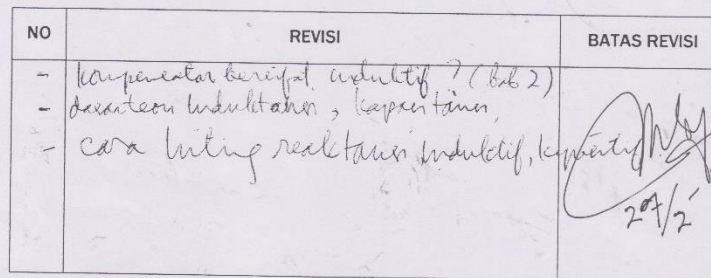 NO REVISI BATAS REVISI
- kompensator bersifat induktif ? (bab 2)
- dasar teori Induktansi, kapasitansi
- cara hitung reaktansi induktif, kapasitif